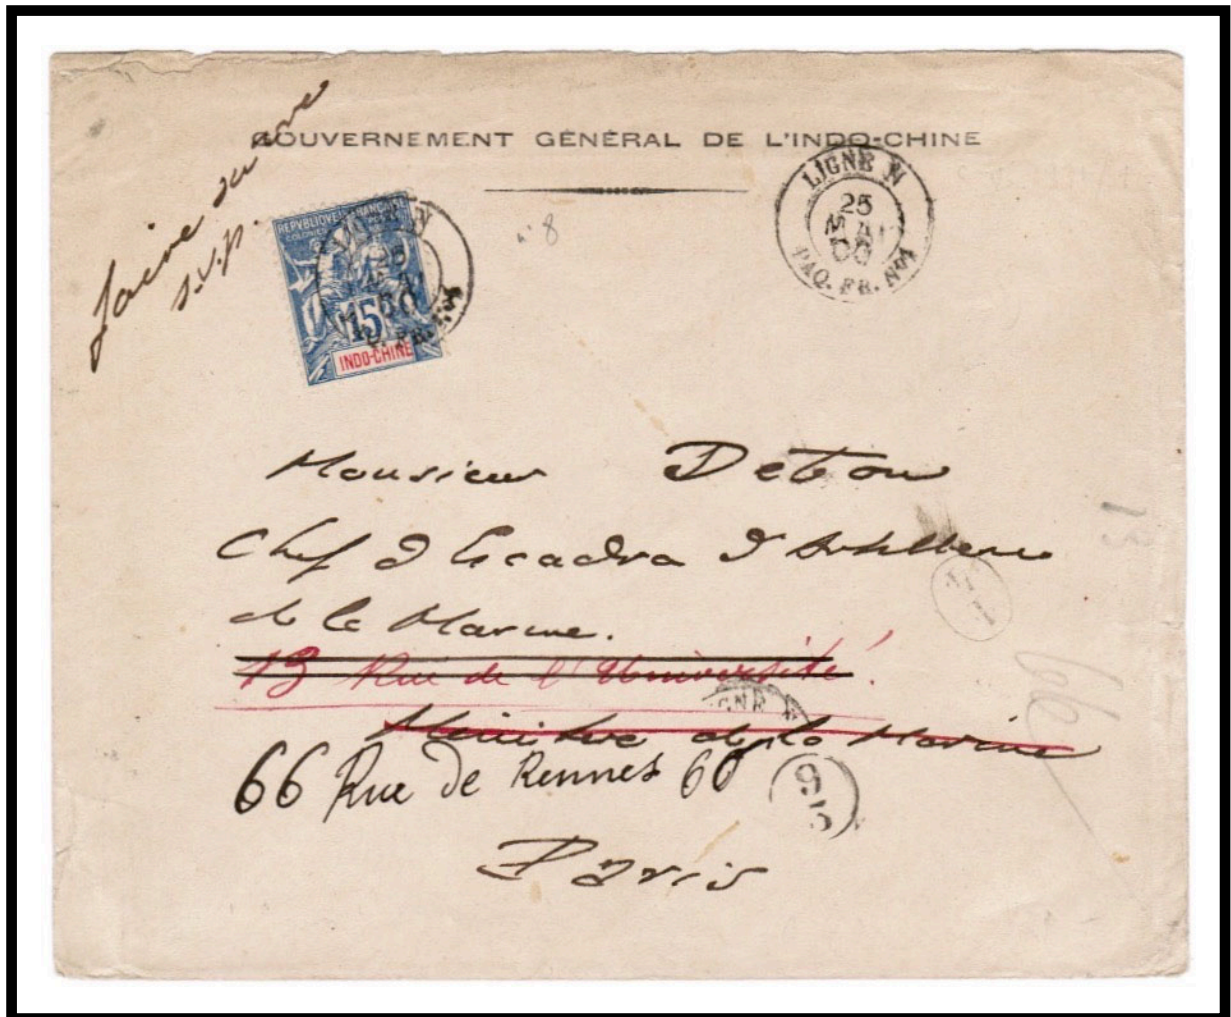 GOUVERNEMENT GÉNÉRAL DE L'INDO-CHINE
Faire suivre
s.v.p.
REPVBLIQVE FRANÇAISE
COLONIES
15
INDO-CHINE
25
MAI
00
n° 8
LIGNE N
25
MAI
00
PAQ. FR. N°1
Monsieur Debon
Chef d'Escadron d'Artillerie
de la Marine.
13 Rue de l'Université!
LIGNE N
Ministère de la Marine
66 Rue de Rennes 66
9
5
Paris
13
66